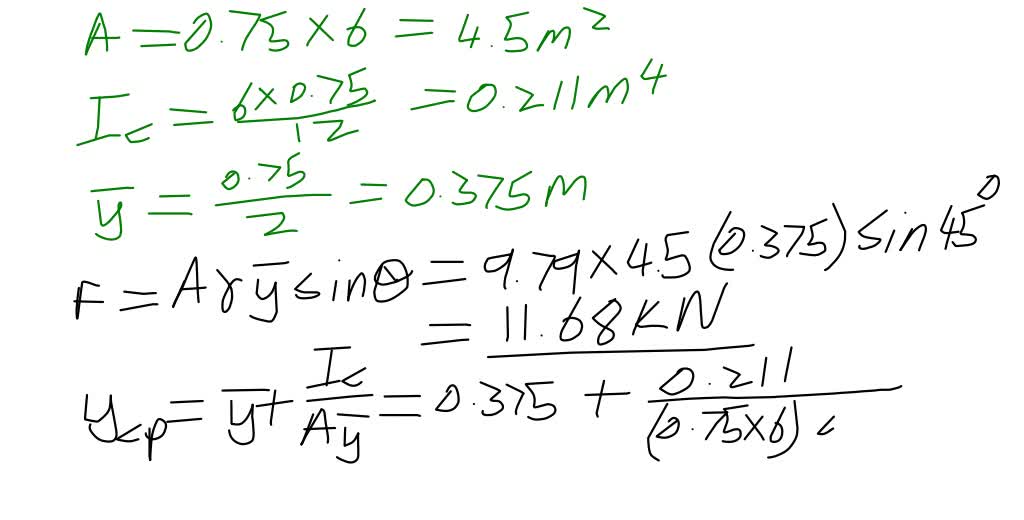 A = 0.75 × 6 = 4.5 m²
I_c = (6 × 0.75)/12 = 0.211 m⁴
ȳ = 0.75/2 = 0.375 m
F = A γ ȳ sin θ = 9.79 × 4.5 (0.375) sin 45°
= 11.68 KN
y_cp = ȳ + I_c/(A ȳ) = 0.375 + 0.211/(0.75 × 6)